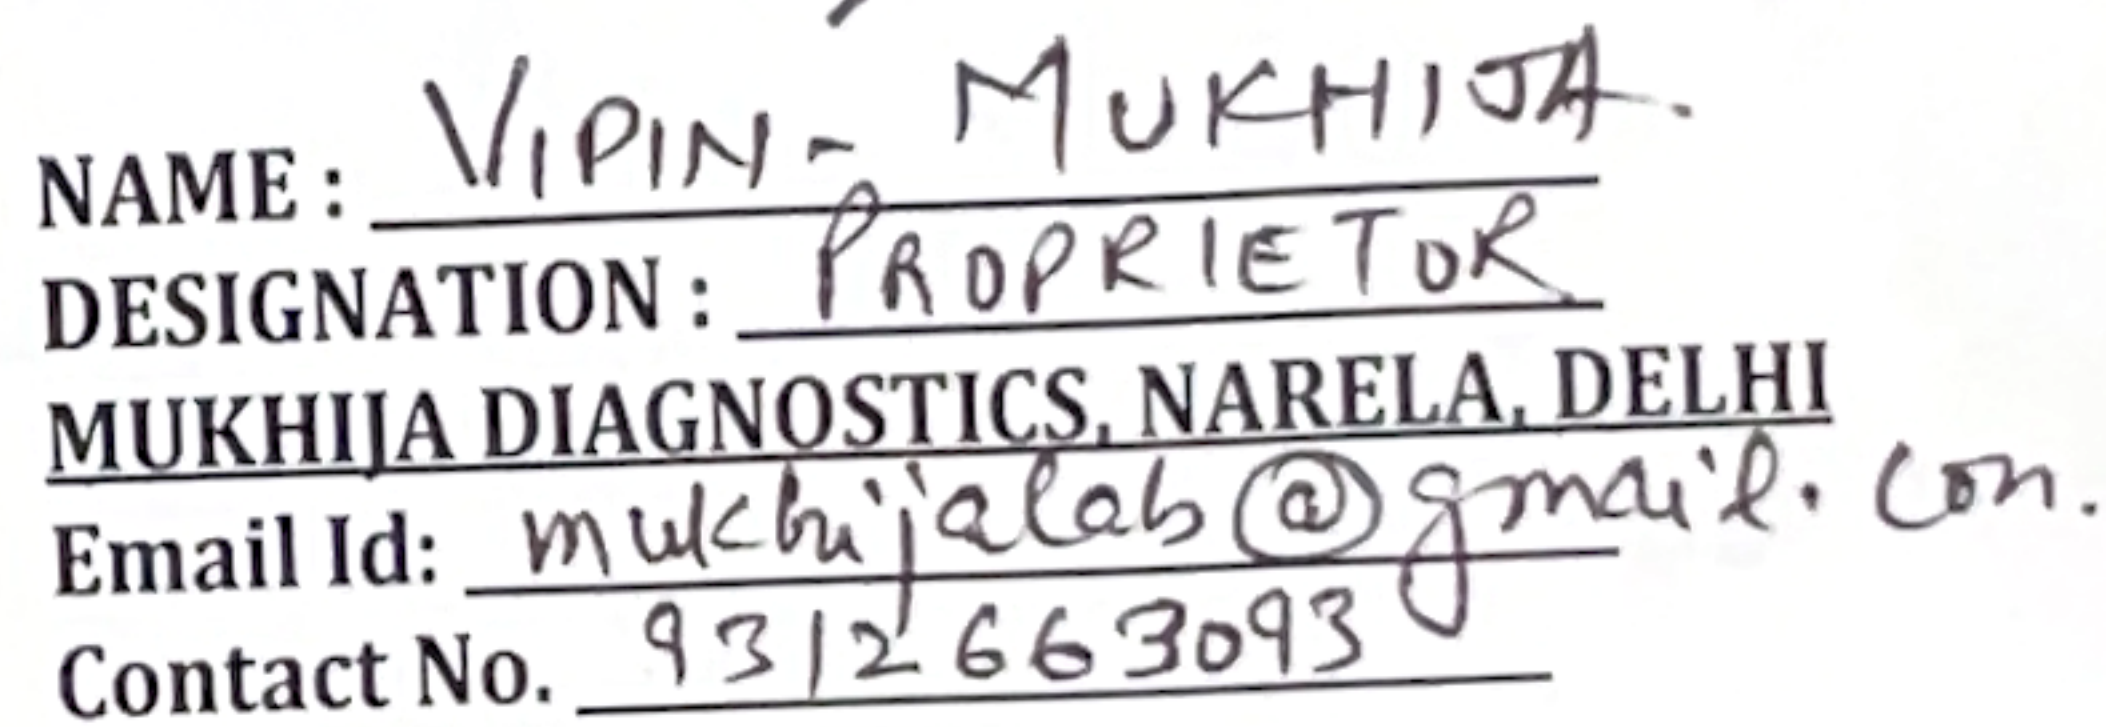 NAME : VIPIN - MUKHIJA.
DESIGNATION : PROPRIETOR
MUKHIJA DIAGNOSTICS, NARELA, DELHI
Email Id: mukhijalab@gmail.com.
Contact No. 9312663093